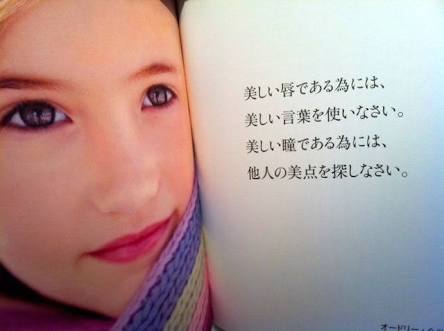 美しい唇である為には、
美しい言葉を使いなさい。
美しい瞳である為には、
他人の美点を探しなさい。
オードリー